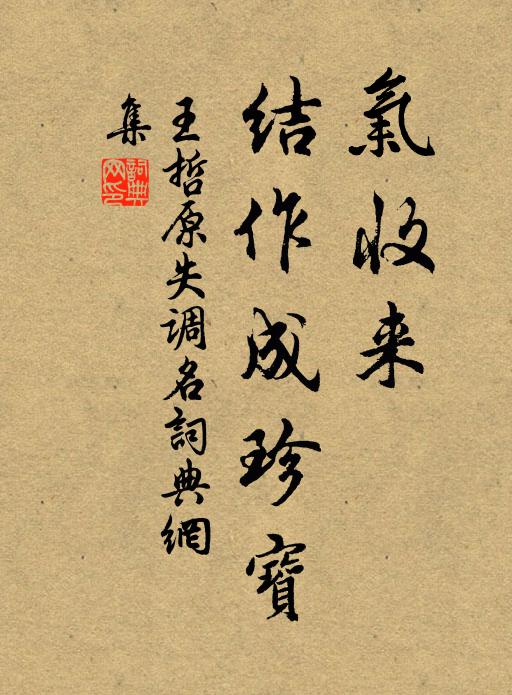 氣收来
結作成珍寶
王哲原失调名詞典網
集
詞典
网印